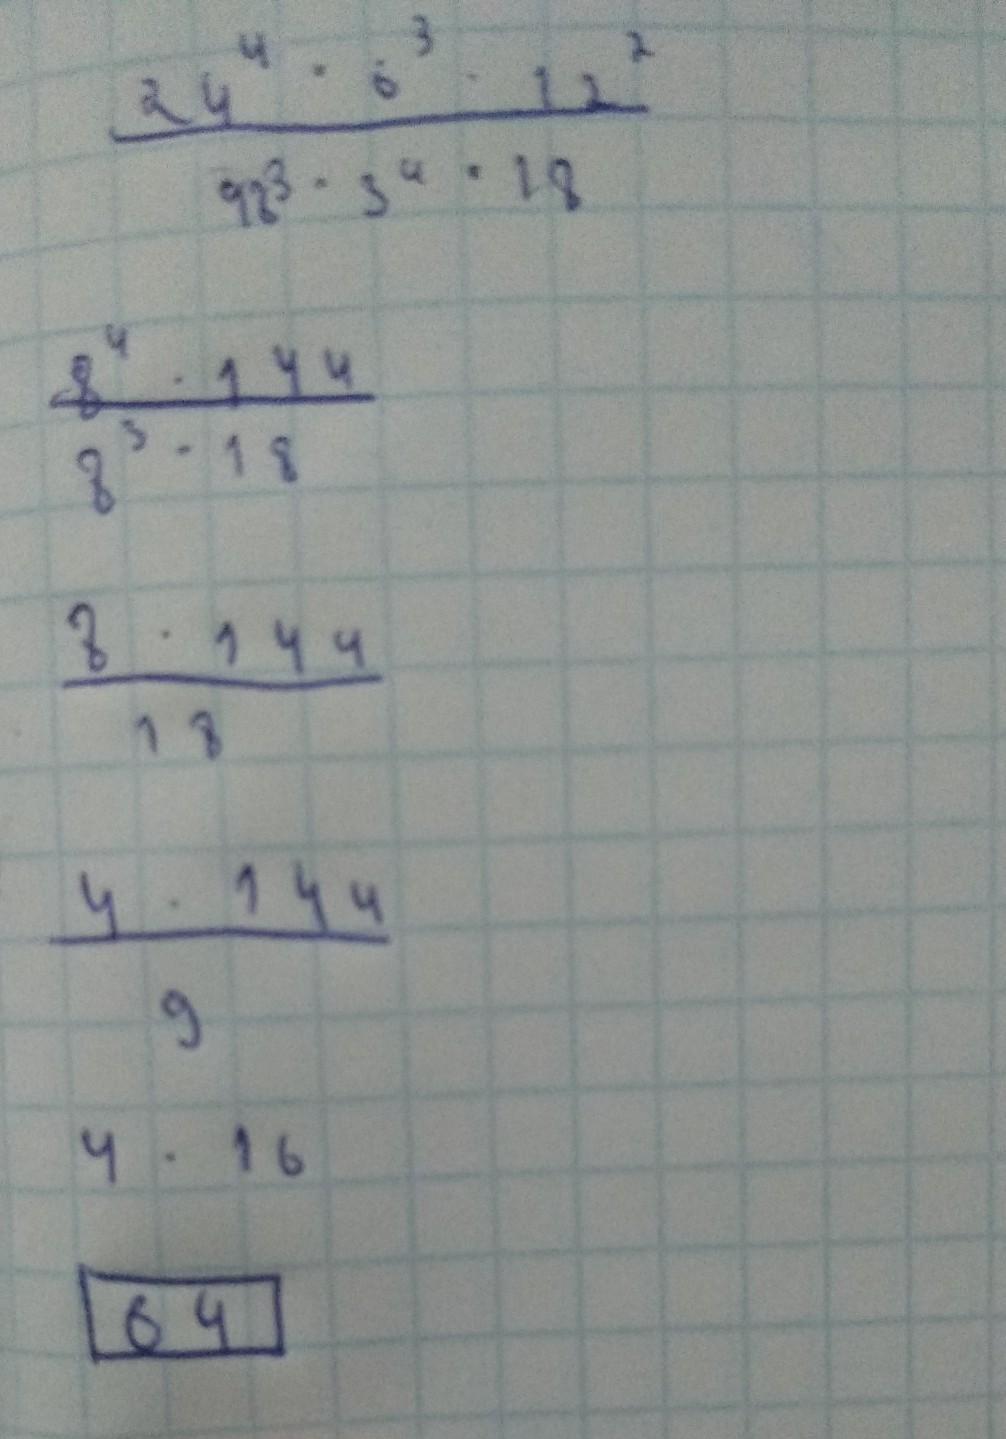 24⁴ · 6³ · 12²
48³ · 3⁴ · 18
8⁴ · 144
8³ · 18
8 · 144
18
4 · 144
9
4 · 16
64